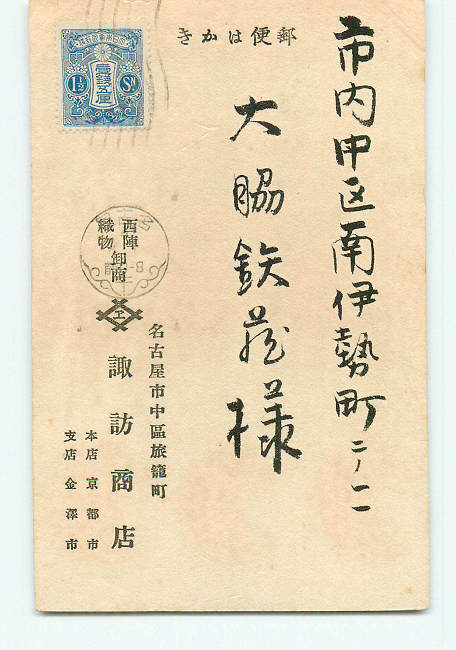 郵便はかき
市内中区南伊勢町二ノ
大脇鉄蔵様
大日本帝國郵便
壹錢五厘
1½ Sn
西陣
織物
卸商
名古屋市中區旅籠町
諏訪商店
本店京都市
支店金澤市